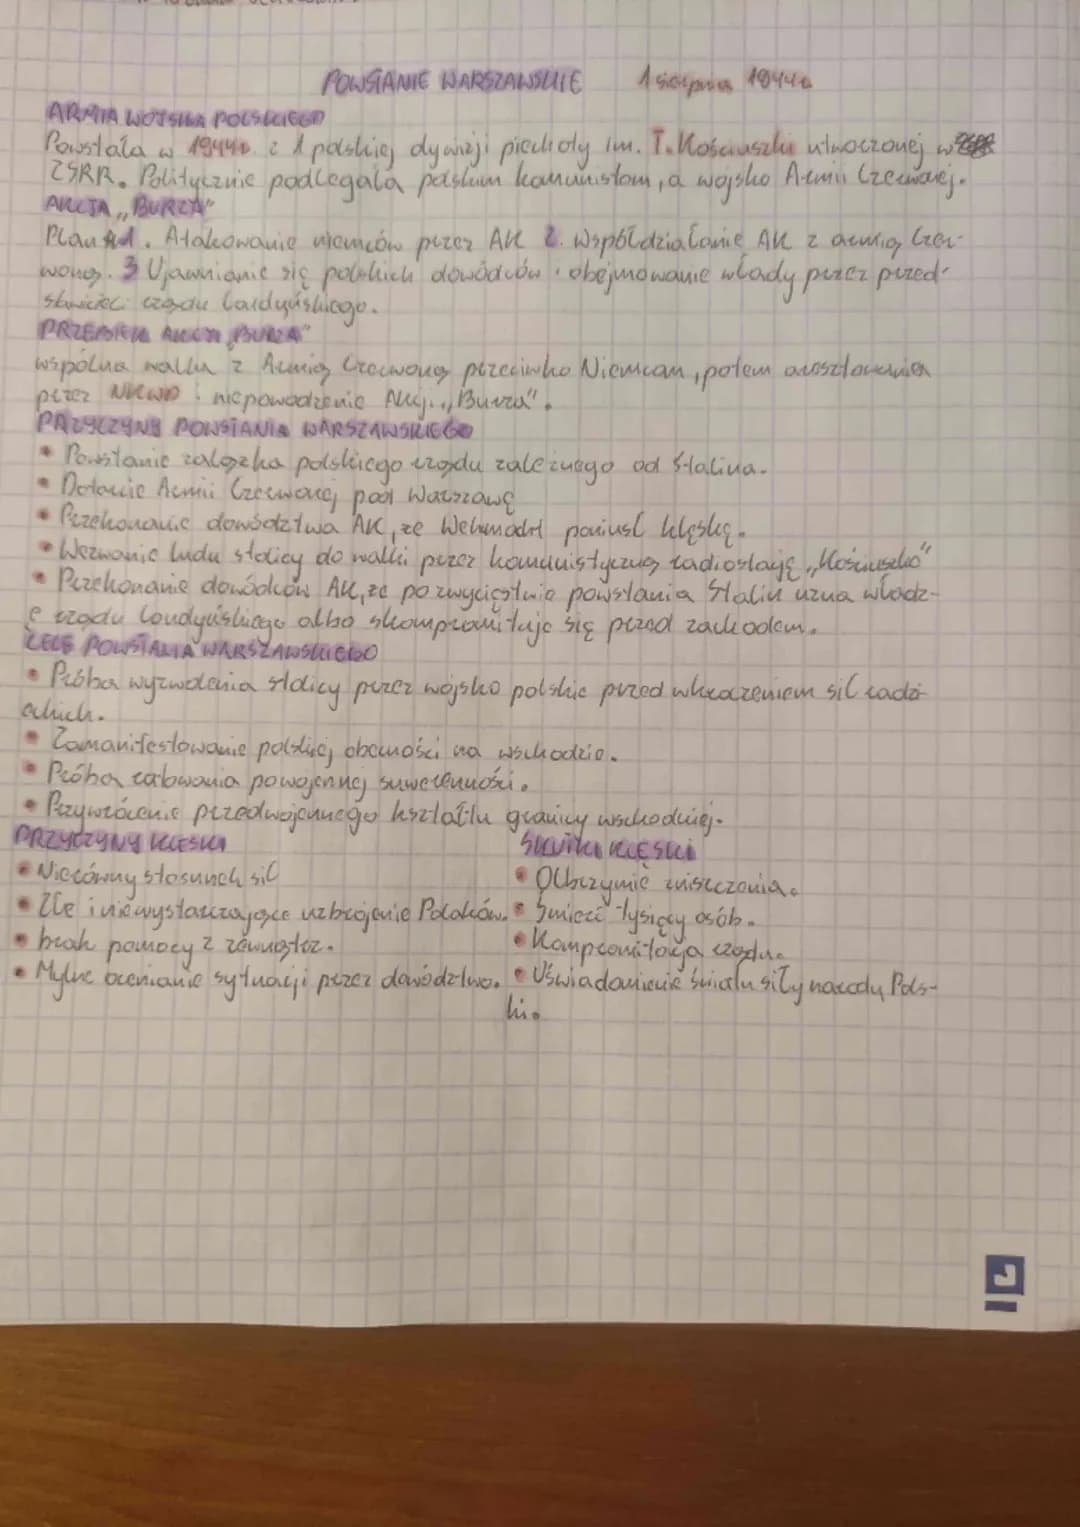 POWSTANIE WARSZAWSKIE 1 sierpnia 1944r.
ARMIA WOJSKA POLSKIEGO
Powstała w 1944r. z 1 polskiej dywizji piechoty im. T. Kościuszki utworzonej w
ZSRR. Politycznie podlegała polskim komunistom, a wojsko Armii Czerwonej.
AKCJA „BURZA"
Plan 1. Atakowanie niemców przez AK 2. Współdziałanie AK z armią Czer-
woną. 3 Ujawnianie się polskich dowódców i obejmowanie władzy przez przed-
stawicieli rządu londyńskiego.
PRZEBIEG AKCJI „BURZA"
wspólna walka z Armią Czerwoną przeciwko Niemcom, potem aresztowania
przez NKWD i niepowodzenie Akcji „Burza".
PRZYCZYNY POWSTANIA WARSZAWSKIEGO
• Powstanie zalążka polskiego rządu zależnego od Stalina.
• Dotarcie Armii Czerwonej pod Warszawę
• Przekonanie dowództwa AK, że Wehrmacht poniósł klęskę.
• Wezwanie ludu stolicy do walki przez komunistyczną radiostację „Kościuszko"
• Przekonanie dowódców AK, że po zwycięstwie powstania Stalin uzna władz-
ę rządu londyńskiego albo skompromituje się przed zachodem.
CELE POWSTANIA WARSZAWSKIEGO
• Próba wyzwolenia stolicy przez wojsko polskie przed wkroczeniem sił radzi-
eckich.
• Zamanifestowanie polskiej obecności na wschodzie.
• Próba ratowania powojennej suwerenności.
• Przywrócenie przedwojennego kształtu granicy wschodniej.
PRZYCZYNY KLĘSKI
• Nierówny stosunek sił
• Złe i niewystarczające uzbrojenie Polaków.
• brak pomocy z zewnątrz.
• Mylne ocenianie sytuacji przez dowództwo.
SKUTKI KLĘSKI
• Olbrzymie zniszczenia.
• Śmierć tysięcy osób.
• Kompromitacja rządu.
• Uświadomienie światu siły narodu Pols-
ki.